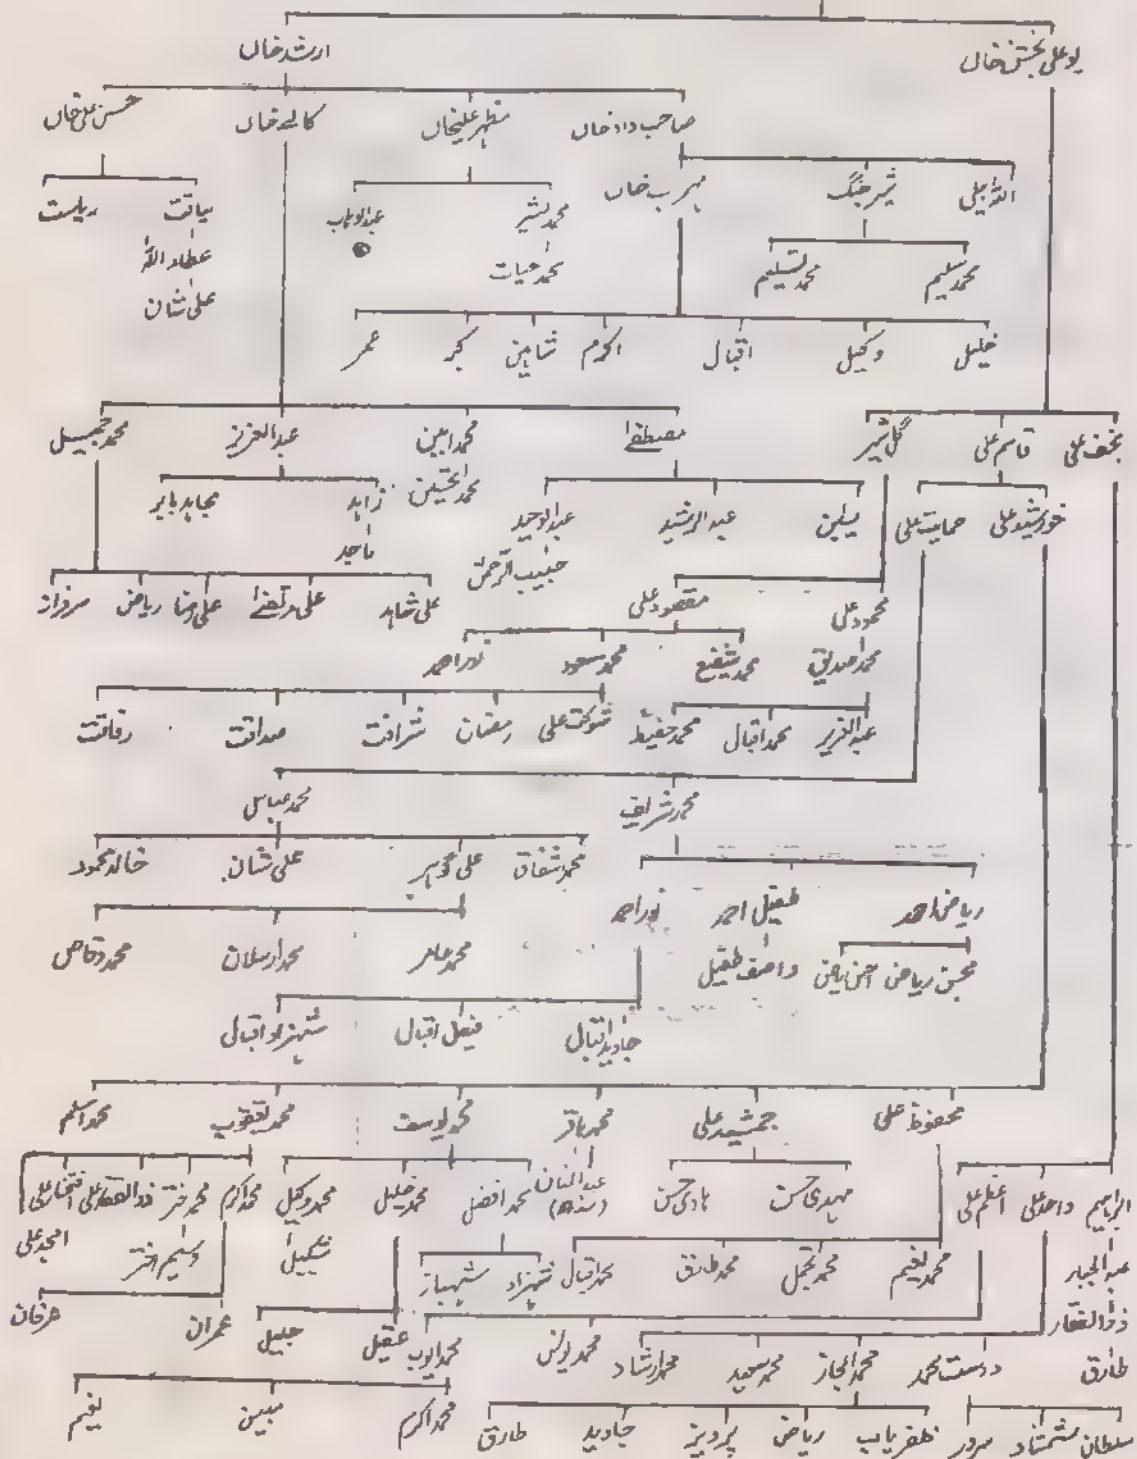 ارشد خاں
بو علی بخش خاں
صاحب داد خاں مظہر علیخاں کالے خاں حسن علی خاں
اللہ بیلی شیر جنگ مہرب خاں محمد بشیر عبدالوہاب لیاقت ریاست
محمد حیات عطاء اللہ
محمد سلیم محمد تسلیم علی شان
خلیل وکیل اقبال اکرم شاہین کبر عمر
نجف علی قاسم علی گل شیر مصطفےٰ محمد امین عبدالعزیز محمد جمیل
محمد الحسین زاہد مجاہد بابر
خورشید علی حمایت علی یسٰین عبدالرشید عبدالوحید ماجد
حبیب الرحمٰن
محمود علی مقصود علی علی شاہد علی مرتضےٰ علی رضا ریاض سرفراز
محمد صدیق محمد شفیع محمد سعود نور احمد
عبدالعزیز محمد اقبال محمد حفیظ شوکت علی رمضان شرافت صداقت رفاقت
محمد شریف محمد عباس
محمد شفاق علی گوہر علی شان خالد محمود
ریاض احمد طفیل احمد نور احمد
محمد عامر محمد ارسلان محمد وقاص
محسن ریاض احسن ریاض واصف طفیل
جاوید اقبال فیصل اقبال شہزاد اقبال
محفوظ علی جمشید علی محمد باقر محمد یوسف محمد یعقوب محمد اسلم
ابراہیم واحد علی اعظم علی مہدی حسن ہادی حسن عبدالمنان محمد افضل محمد خلیل محمد وکیل محمد اکرم محمد اختر ذوالفقار علی افتخار علی
(سندھ) امجد علی
عبدالجبار محمد نعیم محمد تجمل محمد طارق محمد اقبال شہزاد شہباز شکیل وسیم اختر
ذوالفقار محمد یونس محمد ایوب عقیل جمیل عمران عرفان
طارق دوست محمد محمد اعجاز محمد سعید محمد ارشاد
محمد اکرم مبین نعیم
سلطان شمشاد سرور ظفریاب ریاض پرویز جاوید طارق